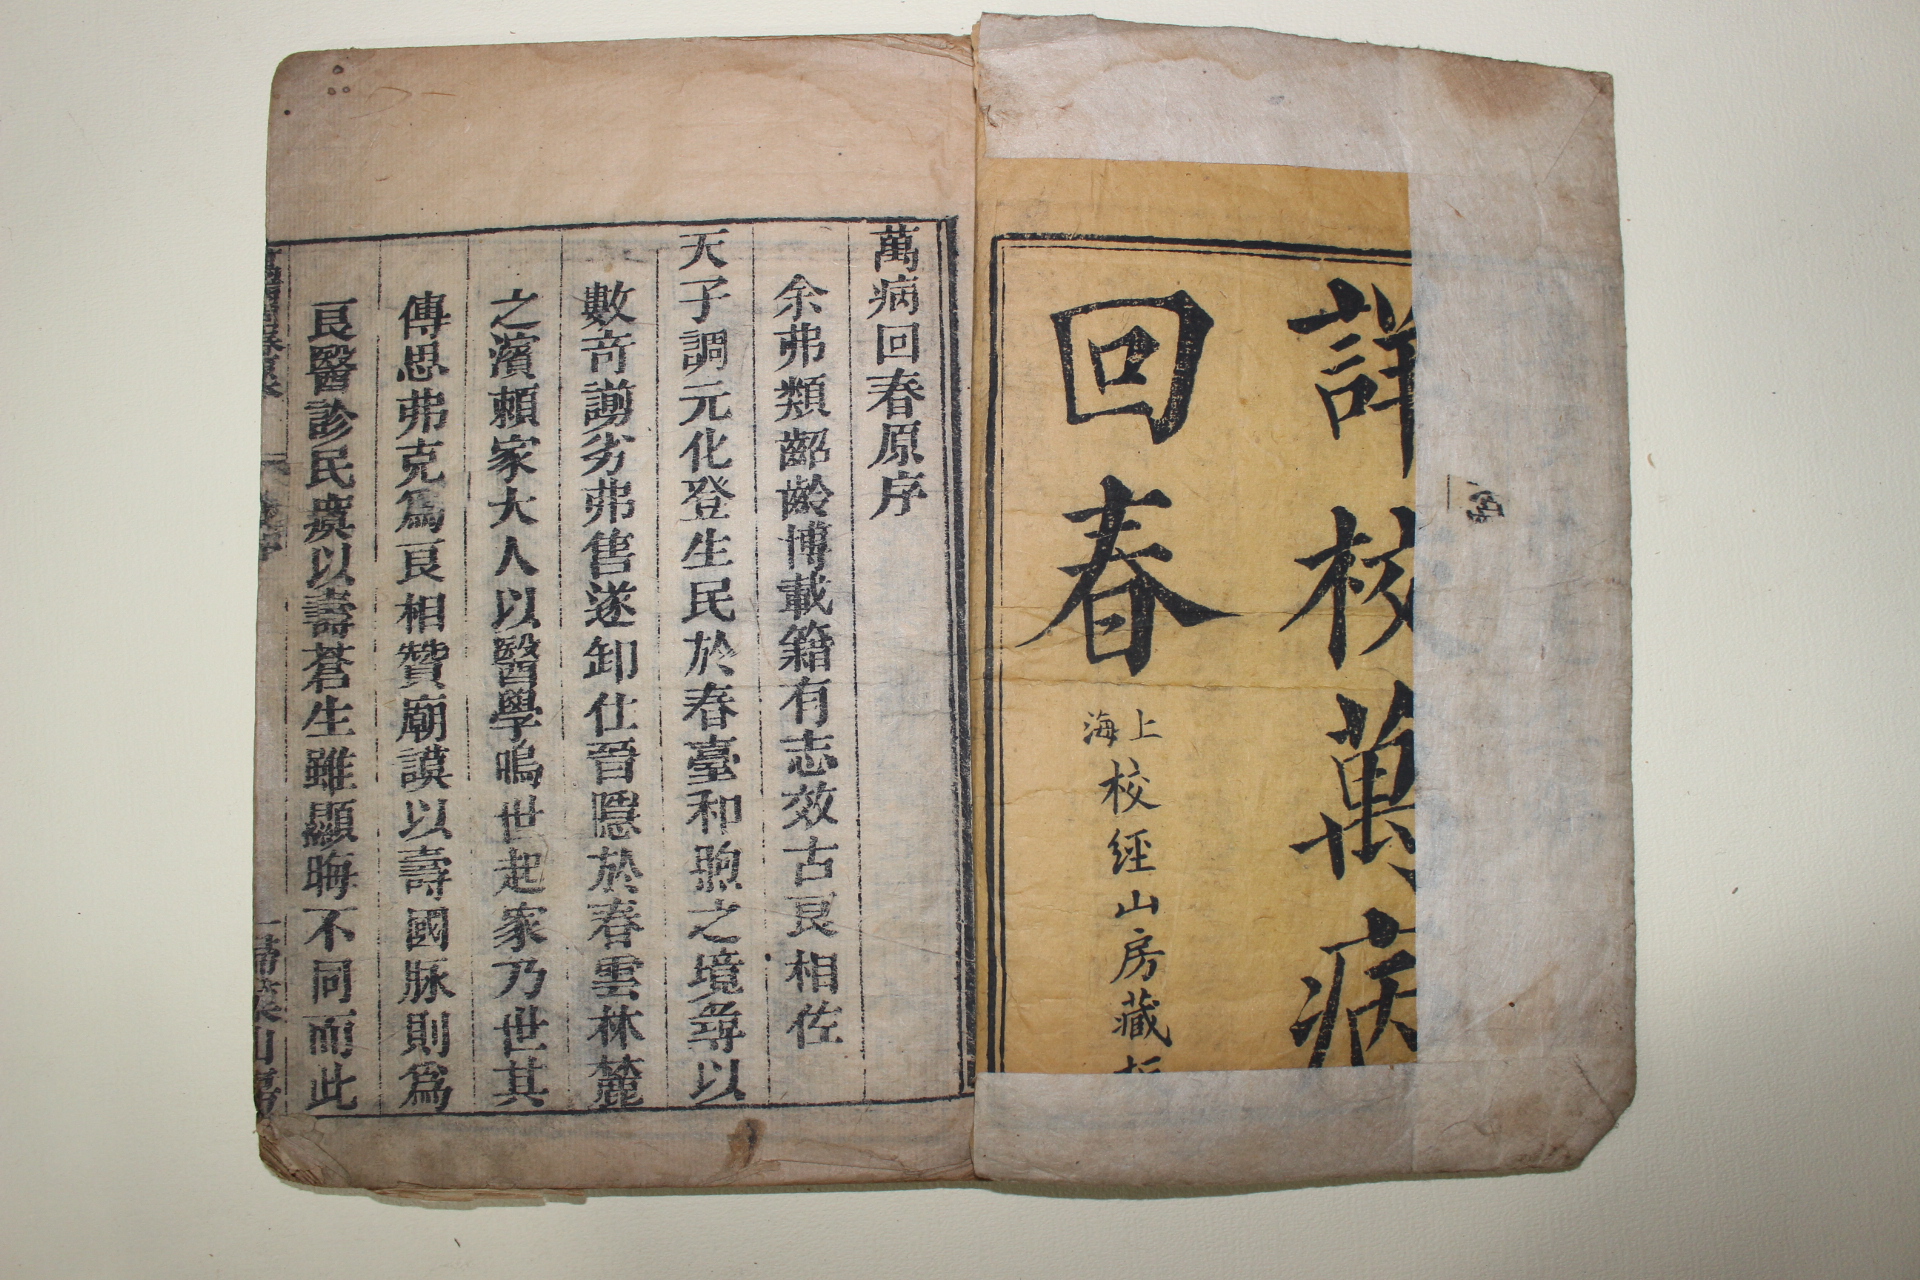 詳校萬病
回春
上海
校經山房藏
萬病回春原序
余弗類齠齡博載籍有志效古良相佐
天子調元化登生民於春臺和煦之境尋以
數奇謭劣弗售遂卸仕晉隱於春雲林麓
之濱賴家大人以醫學鳴世起家乃世其
傳思弗克為良相贊廟謨以壽國脉則為
良醫診民瘼以壽蒼生雖顯晦不同而此